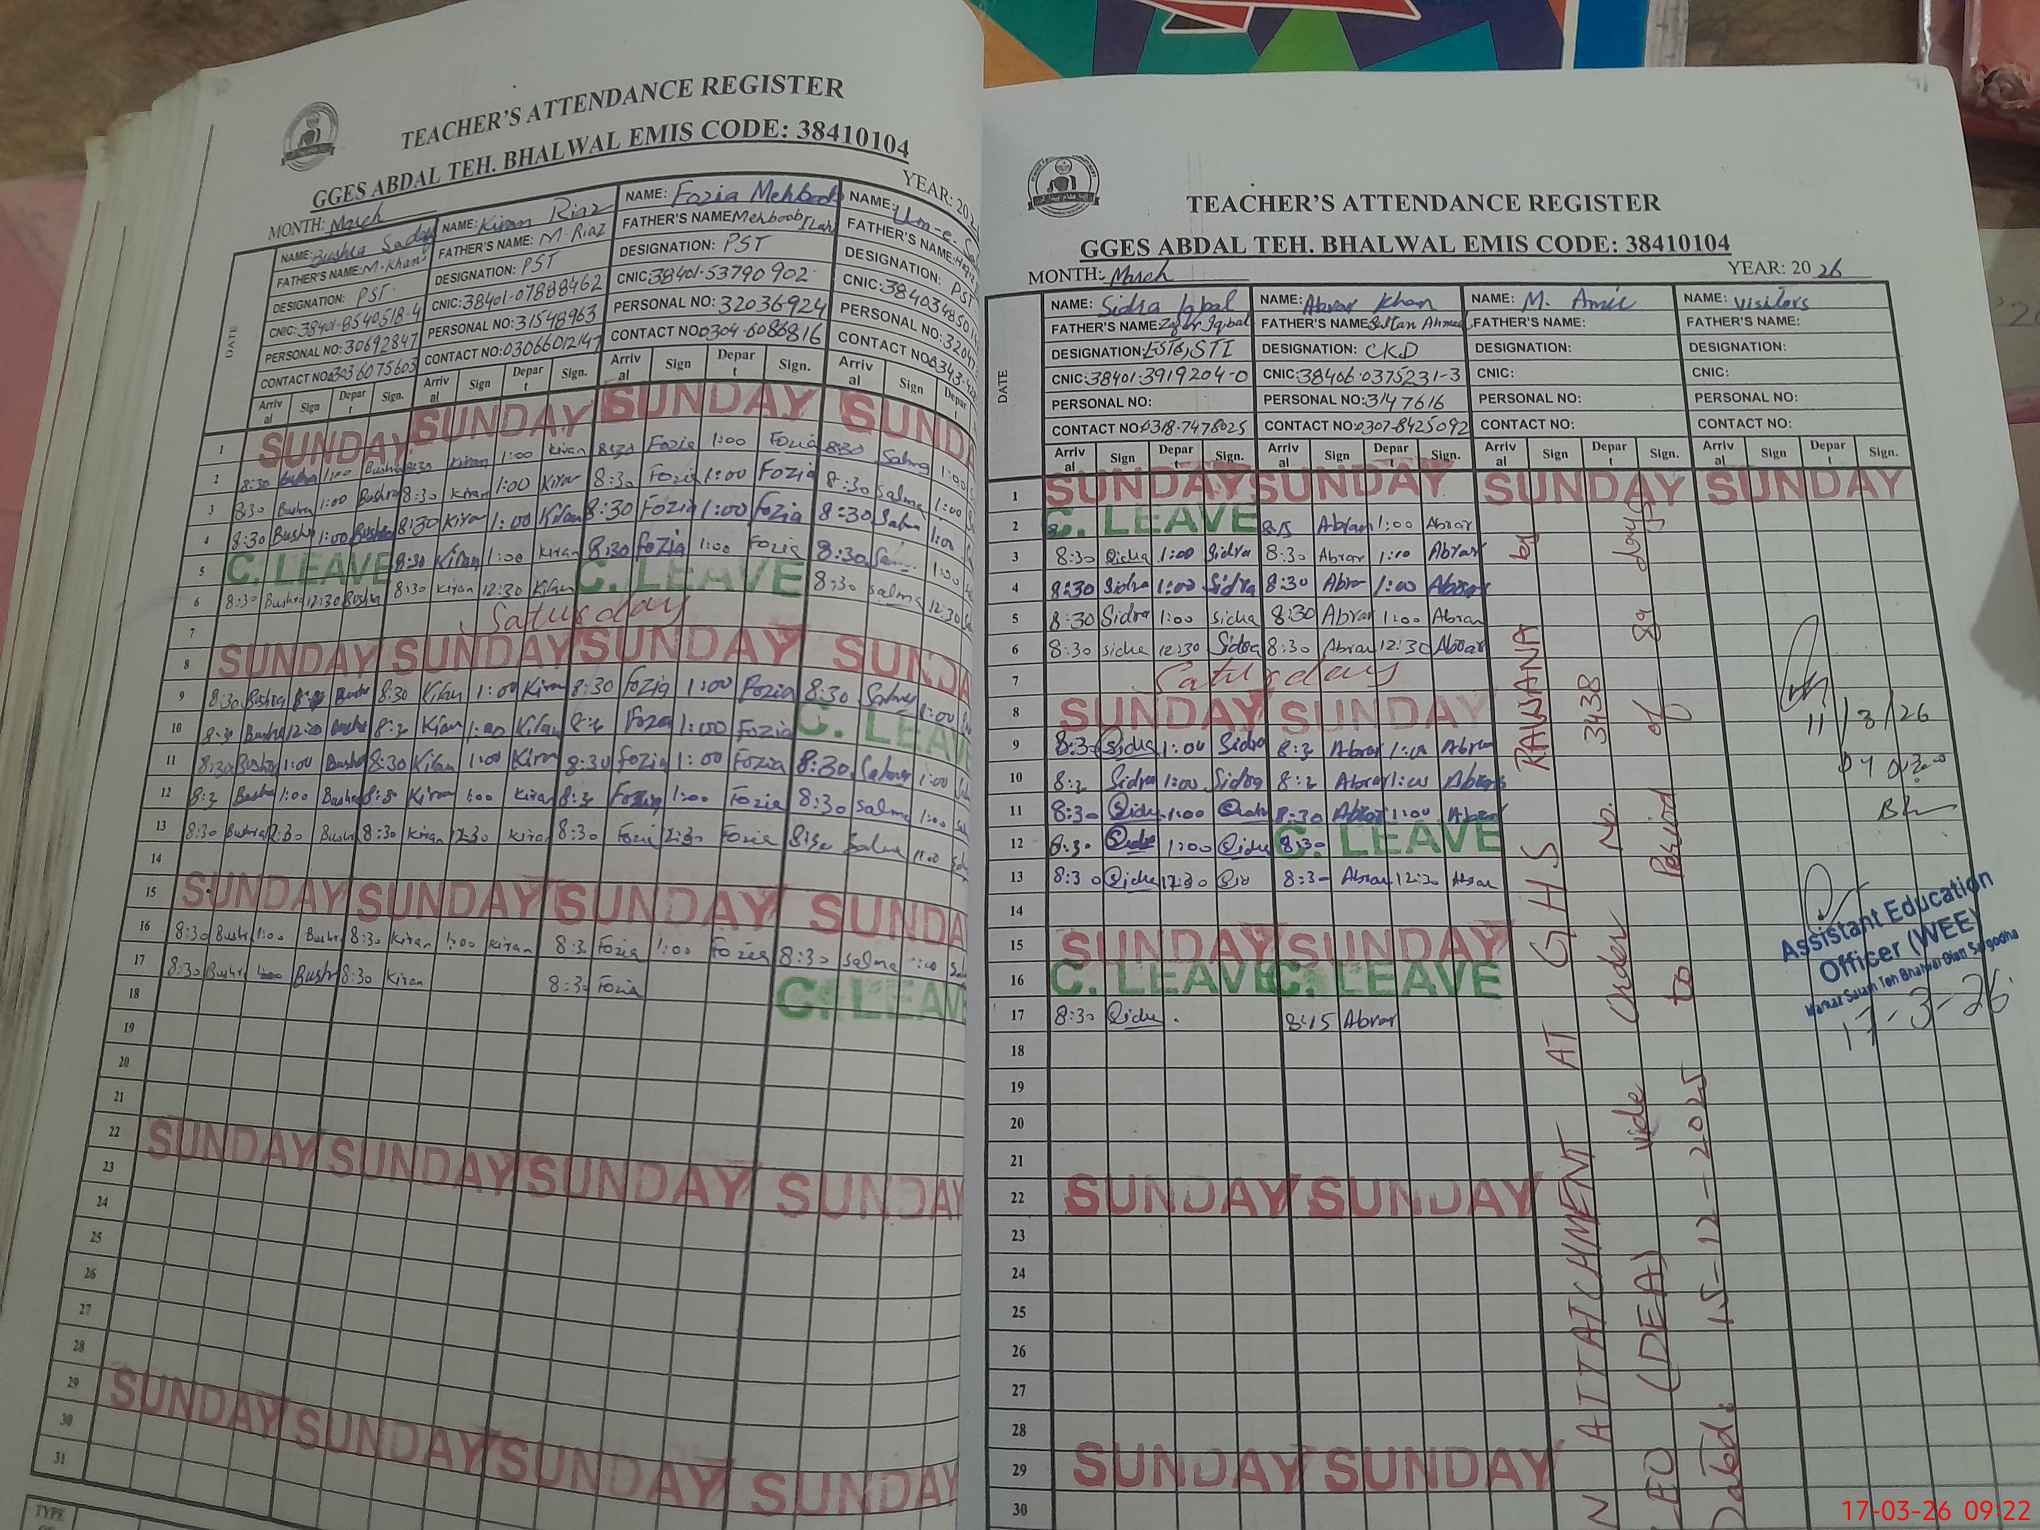 TEACHER'S ATTENDANCE REGISTER
GGES ABDAL TEH. BHALWAL EMIS CODE: 38410104
MONTH: March
YEAR: 20
DATE
NAME: Bushra
FATHER'S NAME: M. Khan
DESIGNATION: PST
CNIC: 38401-8540518-4
PERSONAL NO: 30692847
CONTACT NO: 0303 6075603
NAME: Kiran Riaz
FATHER'S NAME: M. Riaz
DESIGNATION: PST
CNIC: 38401-07888462
PERSONAL NO: 31548963
CONTACT NO: 03066012147
NAME: Fozia Mehboob
FATHER'S NAME Mehboob
DESIGNATION: PST
CNIC: 38401-53790902
PERSONAL NO: 32036924
CONTACT NO: 0304-6086816
NAME: Um-e-
FATHER'S NAME:
DESIGNATION: PST
CNIC:
PERSONAL NO:
CONTACT NO:
Arriv al Sign Depar t Sign. Arriv al Sign Depar t Sign. Arriv al Sign Depar t Sign. Arriv al Sign Depar
1 SUNDAY SUNDAY SUNDAY SUNDA
2 8:30 Bushra 1:00 Bushra 8:30 Kiran 1:00 Kiran 8:30 Fozia 1:00 Fozia 8:30 Salma 1:00
3 8:30 Bushra 1:00 Bushra 8:30 Kiran 1:00 Kiran 8:30 Fozia 1:00 Fozia 8:30 Salma 1:00
4 8:30 Bushra 1:00 Bushra 8:30 Kiran 1:00 Kiran 8:30 Fozia 1:00 Fozia 8:30 Salma 1:00
5 C. LEAVE 8:30 Kiran 1:00 Kiran 8:30 Fozia 1:00 Fozia 8:30 1:00
6 8:30 Bushra 12:30 Bushra 8:30 Kiran 12:30 Kiran C. LEAVE 8:30 Salma 12:30
7 Saturday
8 SUNDAY SUNDAY SUNDAY SUNDA
9 8:30 Bushra Bushra 8:30 Kiran 1:00 Kiran 8:30 Fozia 1:00 Fozia 8:30 Salma 1:00
10 8:30 Bushra Bushra 8:30 Kiran 1:00 Kiran 8:30 Fozia 1:00 Fozia C. LEAV
11 8:30 Bushra 1:00 Bushra 8:30 Kiran 1:00 Kiran 8:30 Fozia 1:00 Fozia 8:30 Salma 1:00
12 8:30 Bushra 1:00 Bushra 8:30 Kiran 1:00 Kiran 8:30 Fozia 1:00 Fozia 8:30 Salma 1:00
13 8:30 Bushra 12:30 Bushra 8:30 Kiran 12:30 Kiran 8:30 Fozia 12:30 Fozia 8:30 Salma
14
15 SUNDAY SUNDAY SUNDAY SUNDA
16 8:30 Bushra 1:00 Bushra 8:30 Kiran 1:00 Kiran 8:30 Fozia 1:00 Fozia 8:30 Salma
17 8:30 Bushra 1:00 Bushra 8:30 Kiran 8:30 Fozia C. LEAV
18
19
20
21
22 SUNDAY SUNDAY SUNDAY SUNDAY
23
24
25
26
27
28
29 SUNDAY SUNDAY SUNDAY SUNDAY
30
31
TYPE
TEACHER'S ATTENDANCE REGISTER
GGES ABDAL TEH. BHALWAL EMIS CODE: 38410104
MONTH: March
YEAR: 2026
DATE
NAME: Sidra Iqbal
FATHER'S NAME Zafar Iqbal
DESIGNATION: STI
CNIC: 38401-3919204-0
PERSONAL NO:
CONTACT NO: 0318-7478025
NAME: Abrar Khan
FATHER'S NAME: Sultan Ahmed
DESIGNATION: CKD
CNIC: 38406-0375231-3
PERSONAL NO: 3147616
CONTACT NO: 0307-8425092
NAME: M. Amir
FATHER'S NAME:
DESIGNATION:
CNIC:
PERSONAL NO:
CONTACT NO:
NAME: Visitors
FATHER'S NAME:
DESIGNATION:
CNIC:
PERSONAL NO:
CONTACT NO:
Arriv al Sign Depar t Sign. Arriv al Sign Depar t Sign. Arriv al Sign Depar t Sign. Arriv al Sign Depar t Sign.
1 SUNDAY SUNDAY SUNDAY SUNDAY
2 C. LEAVE 8:15 Abrar 1:00 Abrar
3 8:30 Sidra 1:00 Sidra 8:30 Abrar 1:10 Abrar
4 8:30 Sidra 1:00 Sidra 8:30 Abrar 1:00 Abrar
5 8:30 Sidra 1:00 Sidra 8:30 Abrar 1:00 Abrar
6 8:30 Sidra 12:30 Sidra 8:30 Abrar 12:30 Abrar
7 Saturday
8 SUNDAY SUNDAY
9 8:30 Sidra 1:00 Sidra 8:30 Abrar 1:00 Abrar
10 8:30 Sidra 1:00 Sidra 8:30 Abrar 1:00 Abrar
11 8:30 Sidra 1:00 Sidra 8:30 Abrar 1:00 Abrar
12 8:30 Sidra 1:00 Sidra 8:30 C. LEAVE
13 8:30 Sidra 12:30 Sidra 8:30 Abrar 12:30 Abrar
14
15 SUNDAY SUNDAY
16 C. LEAVE C. LEAVE
17 8:30 Sidra 8:15 Abrar
18
19
20
21
22 SUNDAY SUNDAY
23
24
25
26
27
28
29 SUNDAY SUNDAY
30
N ATTATCHMENT AT G.H.S RAWANA by
EO (DEA) vide Order No. 3438
Dated: 15-12-2025 to Period of 89 days
11/3/26
Assistant Education
Officer (WEE)
17-3-26
17-03-26 09:22